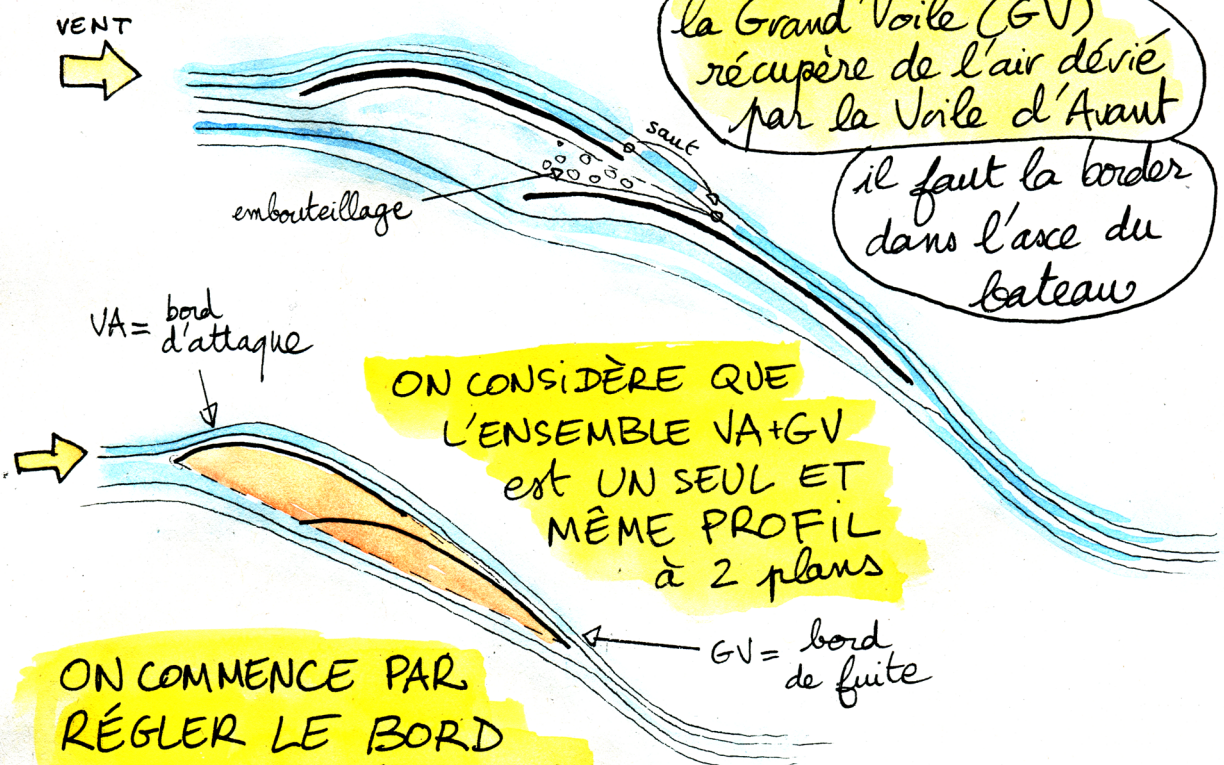 VENT
la Grand'Voile (GV)
récupère de l'air dévié
par la Voile d'Avant
il faut la border
dans l'axe du
bateau
saut
embouteillage
VA = bord
d'attaque
ON CONSiDÈRE QUE
L'ENSEMBLE VA+GV
est UN SEUL ET
MÊME PROFiL
à 2 plans
GV = bord
de fuite
ON COMMENCE PAR
RÉGLER LE BORD